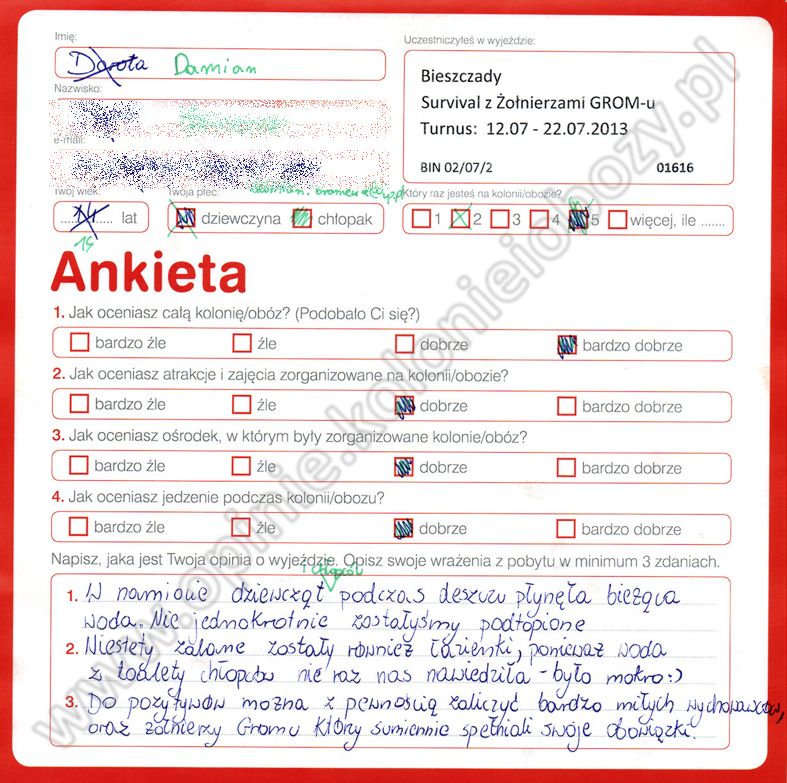 Imię:
Dorota Damian
Uczestniczyłeś w wyjeździe:
Nazwisko:
Bieszczady
Survival z Żołnierzami GROM-u
Turnus: 12.07 - 22.07.2013
e-mail:
BIN 02/07/2 01616
Twój wiek: Twoja płeć: Który raz jesteś na kolonii/obozie?
14 lat dziewczyna chłopak 1 2 3 4 5 więcej, ile .......
Ankieta
1. Jak oceniasz całą kolonię/obóz? (Podobało Ci się?)
bardzo źle źle dobrze bardzo dobrze
2. Jak oceniasz atrakcje i zajęcia zorganizowane na kolonii/obozie?
bardzo źle źle dobrze bardzo dobrze
3. Jak oceniasz ośrodek, w którym były zorganizowane kolonie/obóz?
bardzo źle źle dobrze bardzo dobrze
4. Jak oceniasz jedzenie podczas kolonii/obozu?
bardzo źle źle dobrze bardzo dobrze
Napisz, jaka jest Twoja opinia o wyjeździe. Opisz swoje wrażenia z pobytu w minimum 3 zdaniach.
1. W namiocie dziewcząt podczas deszczu płynęła bieżąca
woda. Nie jednokrotnie zostałyśmy podtopione
2. Niestety zalane zostały również łazienki, ponieważ woda
z toalety chłopców nie raz nas nawiedziła - było mokro:)
3. Do pozytywów można z pewnością zaliczyć bardzo miłych wychowawców,
oraz żołnierzy Gromu który sumiennie spełniali swoje obowiązki.
www.opinie.kolonieiobozy.pl